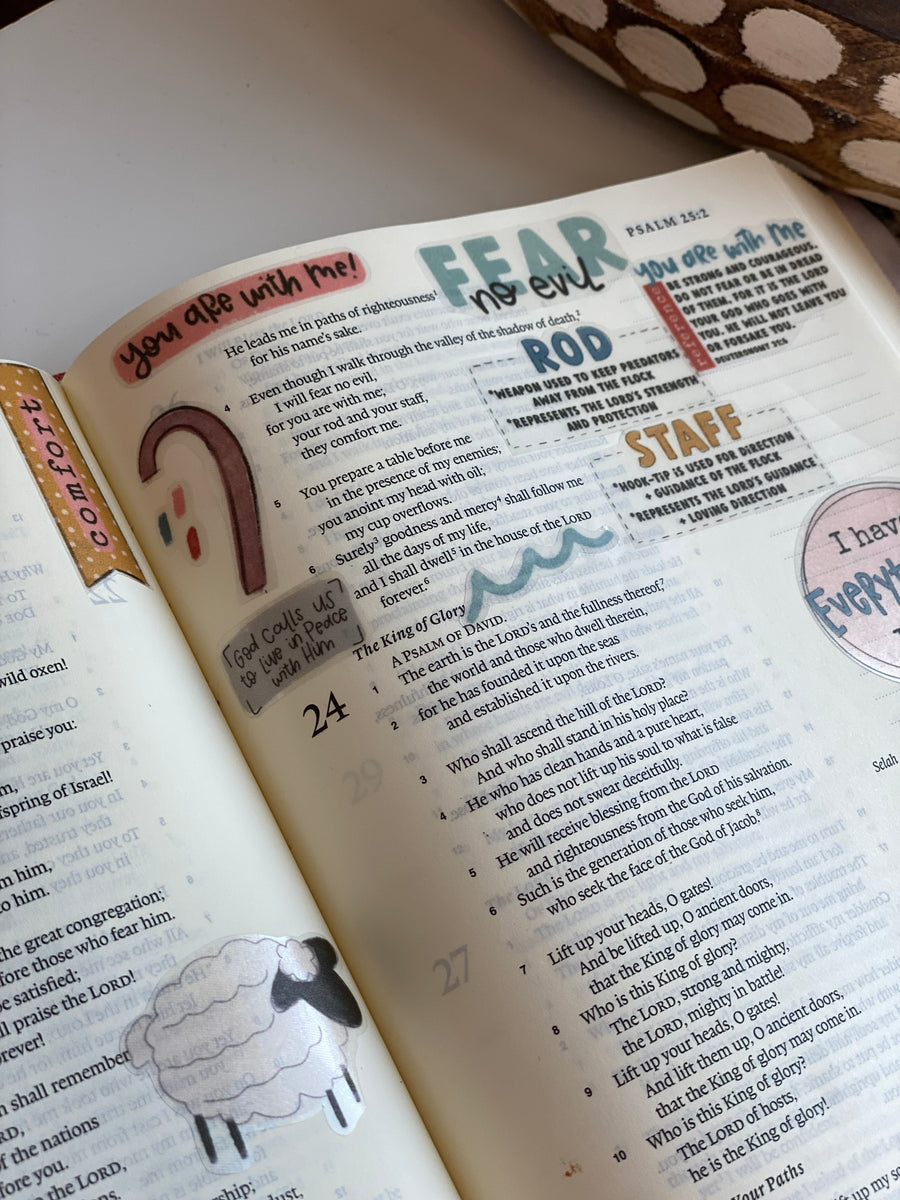 comfort
wild oxen!
praise you:
fspring of Israel!
m him,
to him.
he great congregation;
fore those who fear him.
be satisfied;
ll praise the LORD!
rever!
h shall remember
RD,
f the nations
fore you.
o the LORD,
rship;
dust,
PSALM 25:2
you are with me!
FEAR
no evil
He leads me in paths of righteousness¹
for his name's sake.
4 Even though I walk through the valley of the shadow of death,²
I will fear no evil,
for you are with me;
your rod and your staff,
they comfort me.
5 You prepare a table before me
in the presence of my enemies;
you anoint my head with oil;
my cup overflows.
6 Surely³ goodness and mercy⁴ shall follow me
all the days of my life,
and I shall dwell⁵ in the house of the LORD
forever.⁶
God calls us
to live in peace
with Him
The King of Glory
24
A PSALM OF DAVID.
1 The earth is the LORD's and the fullness thereof,⁷
the world and those who dwell therein,
2 for he has founded it upon the seas
and established it upon the rivers.
3 Who shall ascend the hill of the LORD?
And who shall stand in his holy place?
4 He who has clean hands and a pure heart,
who does not lift up his soul to what is false
and does not swear deceitfully.
5 He will receive blessing from the LORD
and righteousness from the God of his salvation.
6 Such is the generation of those who seek him,
who seek the face of the God of Jacob.⁸
Selah
7 Lift up your heads, O gates!
And be lifted up, O ancient doors,
that the King of glory may come in.
8 Who is this King of glory?
The LORD, strong and mighty,
the LORD, mighty in battle!
9 Lift up your heads, O gates!
And lift them up, O ancient doors,
that the King of glory may come in.
10 Who is this King of glory?
The LORD of hosts,
he is the King of glory!
Your Paths
you are with me
reference
BE STRONG AND COURAGEOUS.
DO NOT FEAR OR BE IN DREAD
OF THEM, FOR IT IS THE LORD
YOUR GOD WHO GOES WITH
YOU. HE WILL NOT LEAVE YOU
OR FORSAKE YOU.
DEUTERONOMY 31:6
ROD
*WEAPON USED TO KEEP PREDATORS
AWAY FROM THE FLOCK
*REPRESENTS THE LORD'S STRENGTH
AND PROTECTION
STAFF
*HOOK-TIP IS USED FOR DIRECTION
+ GUIDANCE OF THE FLOCK
*REPRESENTS THE LORD'S GUIDANCE
+ LOVING DIRECTION
I have
Everyt